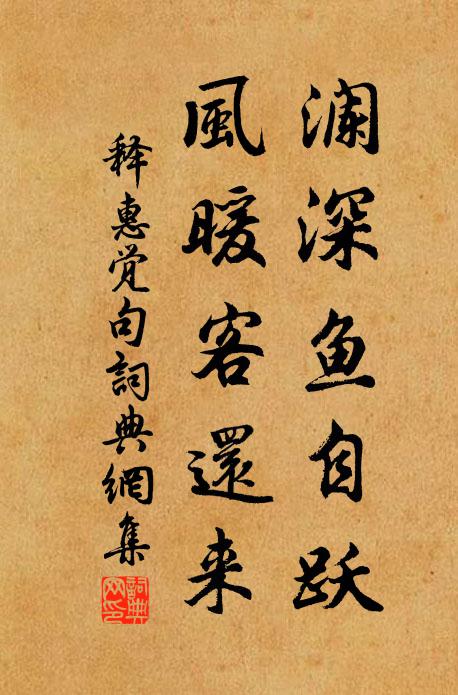 澜深鱼自跃
風暖客還来
释惠觉句詞典網集
詞典网印